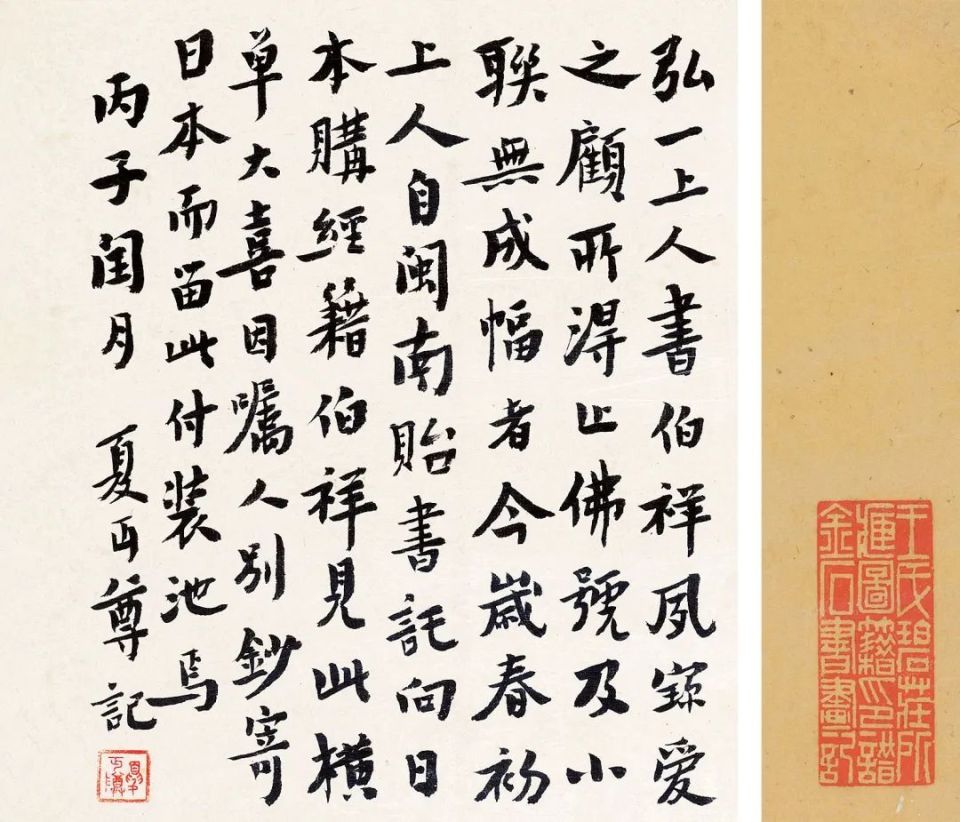 弘一上人書伯祥夙寳愛
之顧所得止佛號及小
聯無成幅者今歲春初
上人自閩南貽書託向日
本購經籍伯祥見此橫
草大喜因囑人別鈔寄
日本而留此付裝池焉
丙子閏月 夏丏尊記
夏丏尊
王氏碧莊所
藏圖籍印譜
金石書畫記